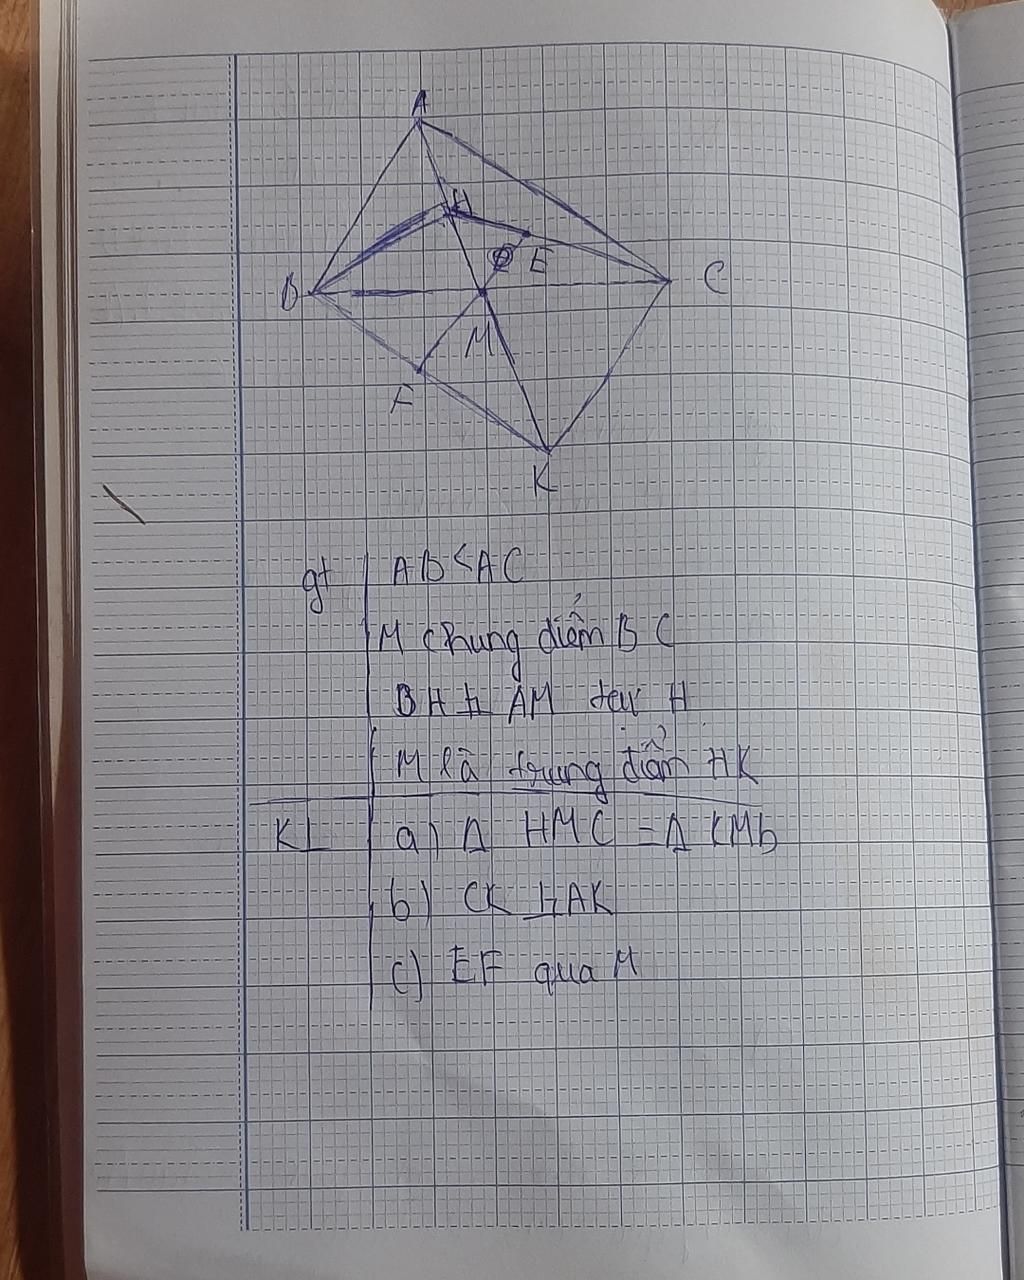 A
H
E
B
C
M
F
K
gt AB < AC
M trung điểm BC
BH ⊥ AM tại H
M là trung điểm HK
KL a) Δ HMC = Δ KMB
b) CK ⊥ AK
c) EF qua M